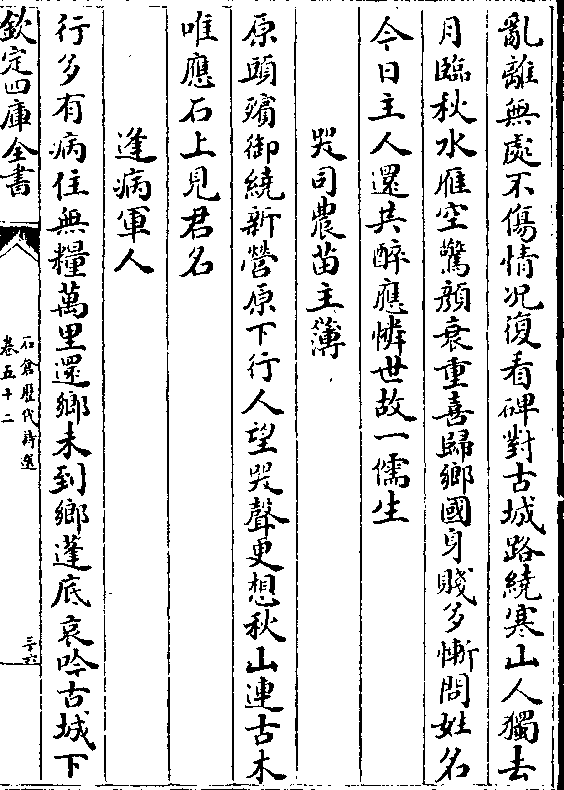 亂離無處不傷情况復看碑對古城路繞寒山人獨去
月臨秋水雁空驚顔衰重喜歸鄉國身賤多慚問姓名
今日主人還共醉應憐世故一儒生
哭司農苗主簿
原頭殯御繞新營原下行人望哭聲更想秋山連古木
唯應石上見君名
逢病軍人
行多有病住無糧萬里還鄉未到鄉蓬底哀吟古城下
欽定四庫全書
石倉歷代詩選
卷五十二
三六